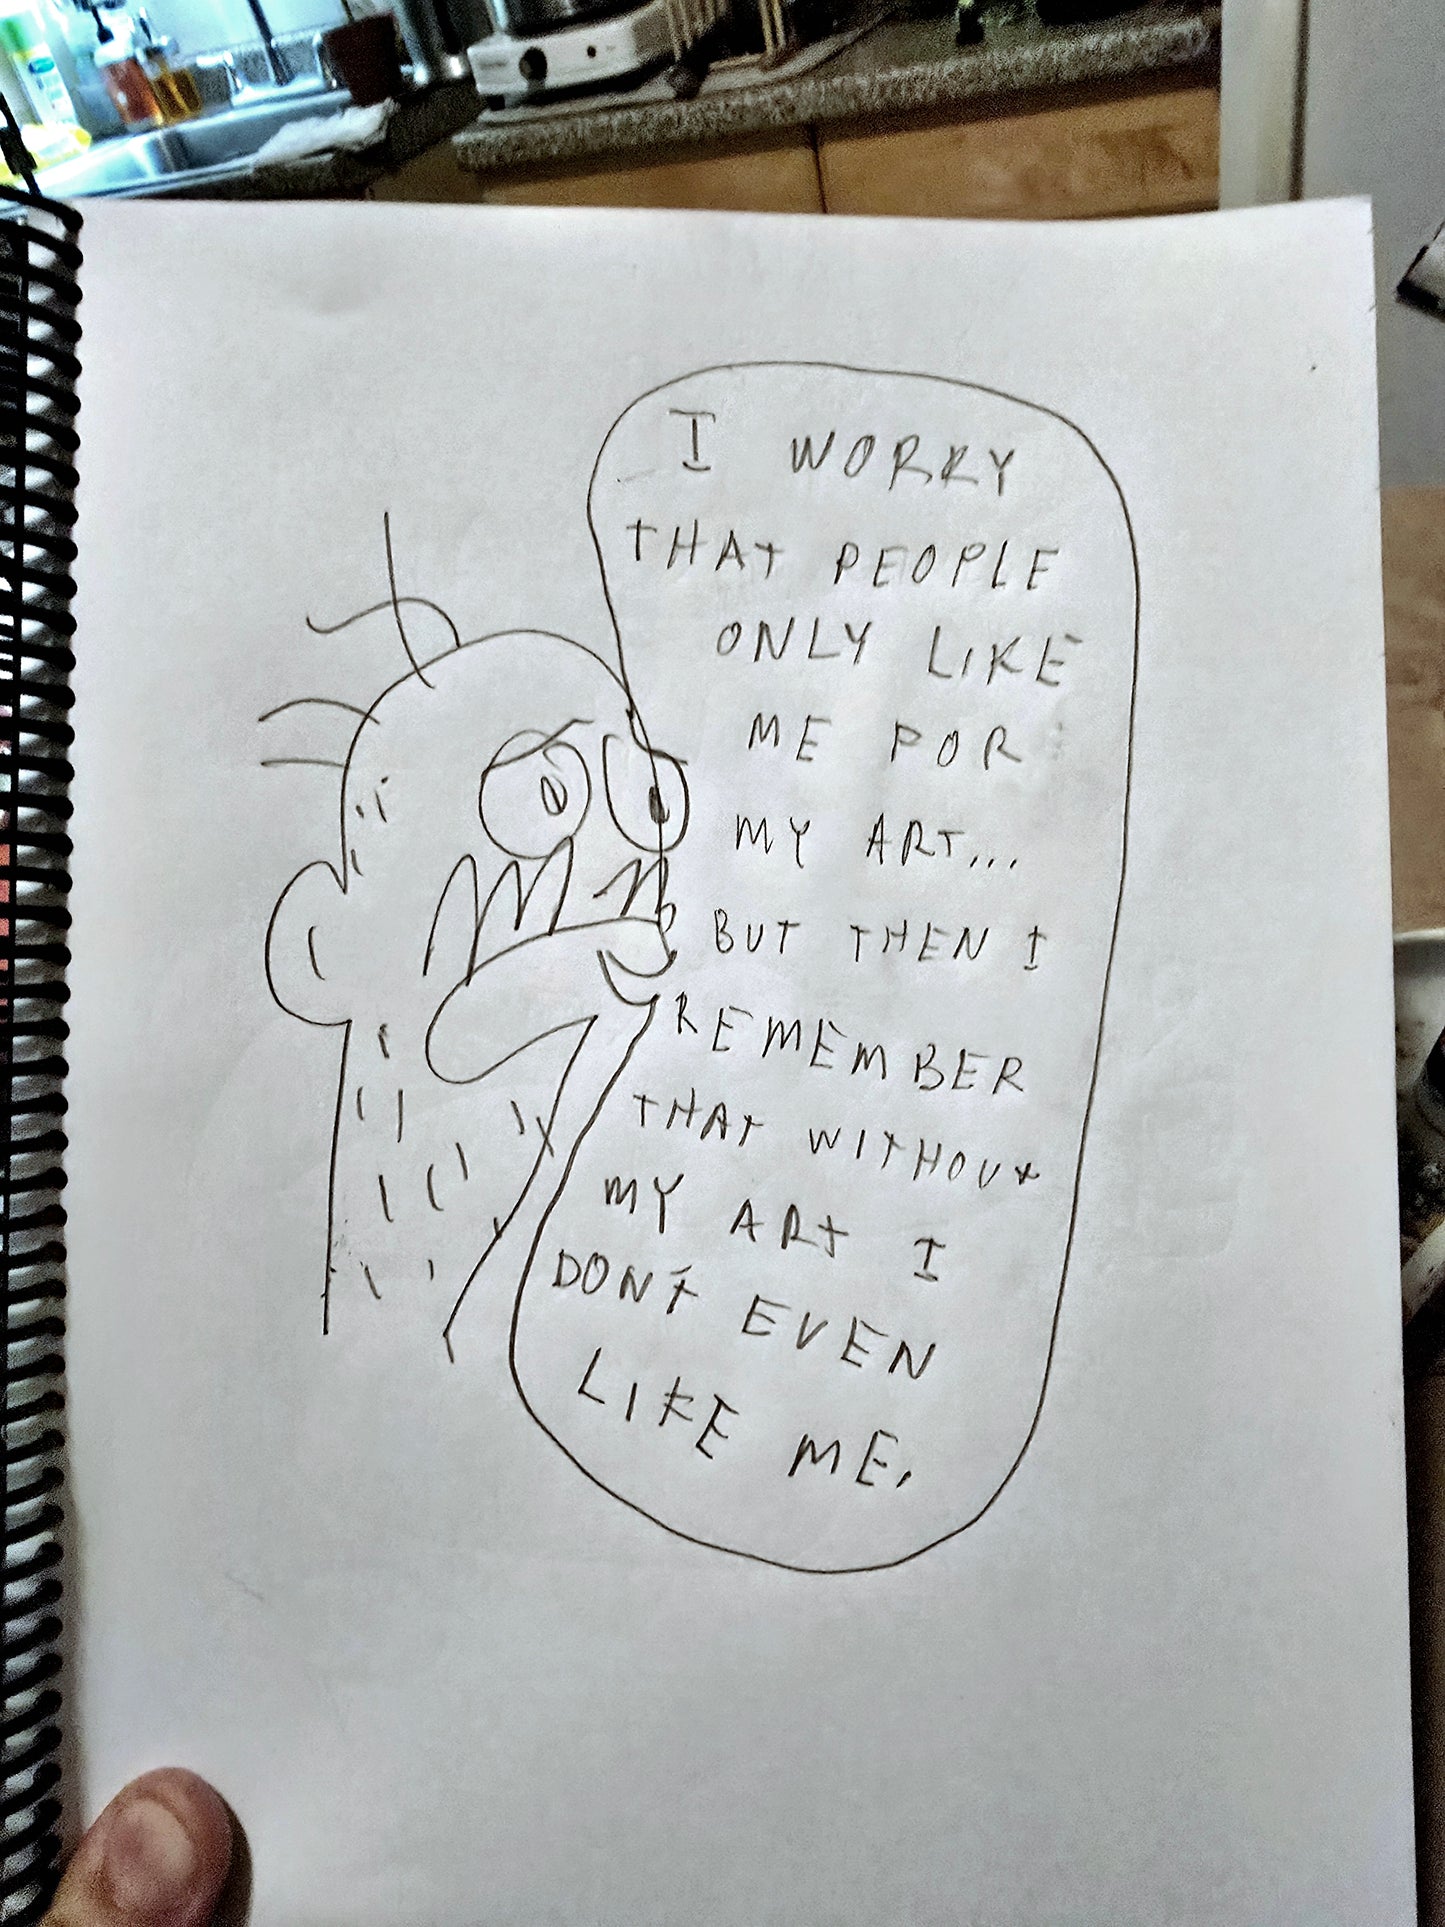 I WORRY
THAT PEOPLE
ONLY LIKE
ME FOR
MY ART...
BUT THEN I
REMEMBER
THAT WITHOUT
MY ART I
DON'T EVEN
LIKE ME.